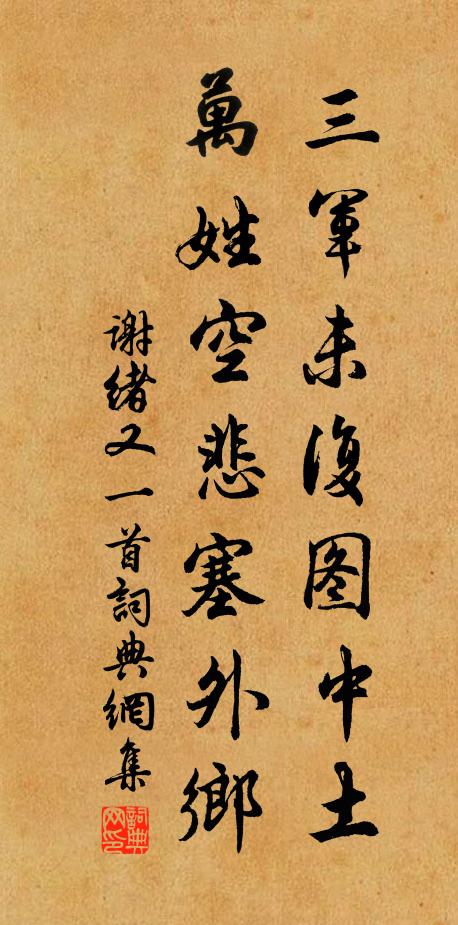 三軍未復图中土
萬姓空悲塞外鄉
谢绪又一首詞典網集
詞典网印